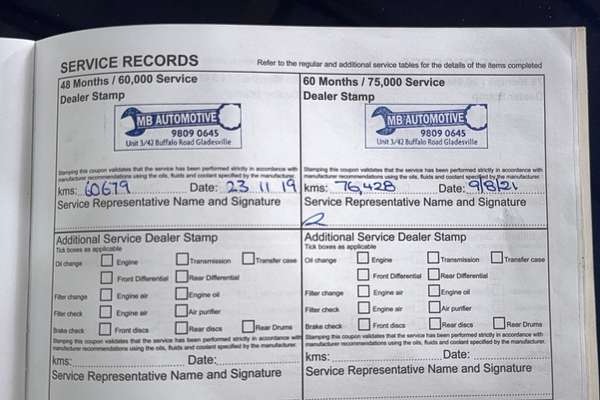 SERVICE RECORDS
Refer to the regular and additional service tables for the details of the items completed
48 Months / 60,000 Service
Dealer Stamp
MB AUTOMOTIVE
9809 0645
Unit 3/42 Buffalo Road Gladesville
Stamping this coupon validates that the service has been performed strictly in accordance with
manufacturer recommendations using the oils, fluids and coolant specified by the manufacturer.
kms: 60679 Date: 23 11 19
Service Representative Name and Signature
Additional Service Dealer Stamp
Tick boxes as applicable
Oil change Engine Transmission Transfer case
Front Differential Rear Differential
Filter change Engine air Engine oil
Filter check Engine air Air purifier
Brake check Front discs Rear discs Rear Drums
Stamping this coupon validates that the service has been performed strictly in accordance with
manufacturer recommendations using the oils, fluids and coolant specified by the manufacturer.
kms: Date:
Service Representative Name and Signature
60 Months / 75,000 Service
Dealer Stamp
MB AUTOMOTIVE
9809 0645
Unit 3/42 Buffalo Road Gladesville
Stamping this coupon validates that the service has been performed strictly in accordance with
manufacturer recommendations using the oils, fluids and coolant specified by the manufacturer.
kms: 76,428 Date: 9/8/21
Service Representative Name and Signature
Additional Service Dealer Stamp
Tick boxes as applicable
Oil change Engine Transmission Transfer case
Front Differential Rear Differential
Filter change Engine air Engine oil
Filter check Engine air Air purifier
Brake check Front discs Rear discs Rear Drums
Stamping this coupon validates that the service has been performed strictly in accordance with
manufacturer recommendations using the oils, fluids and coolant specified by the manufacturer.
kms: Date:
Service Representative Name and Signature